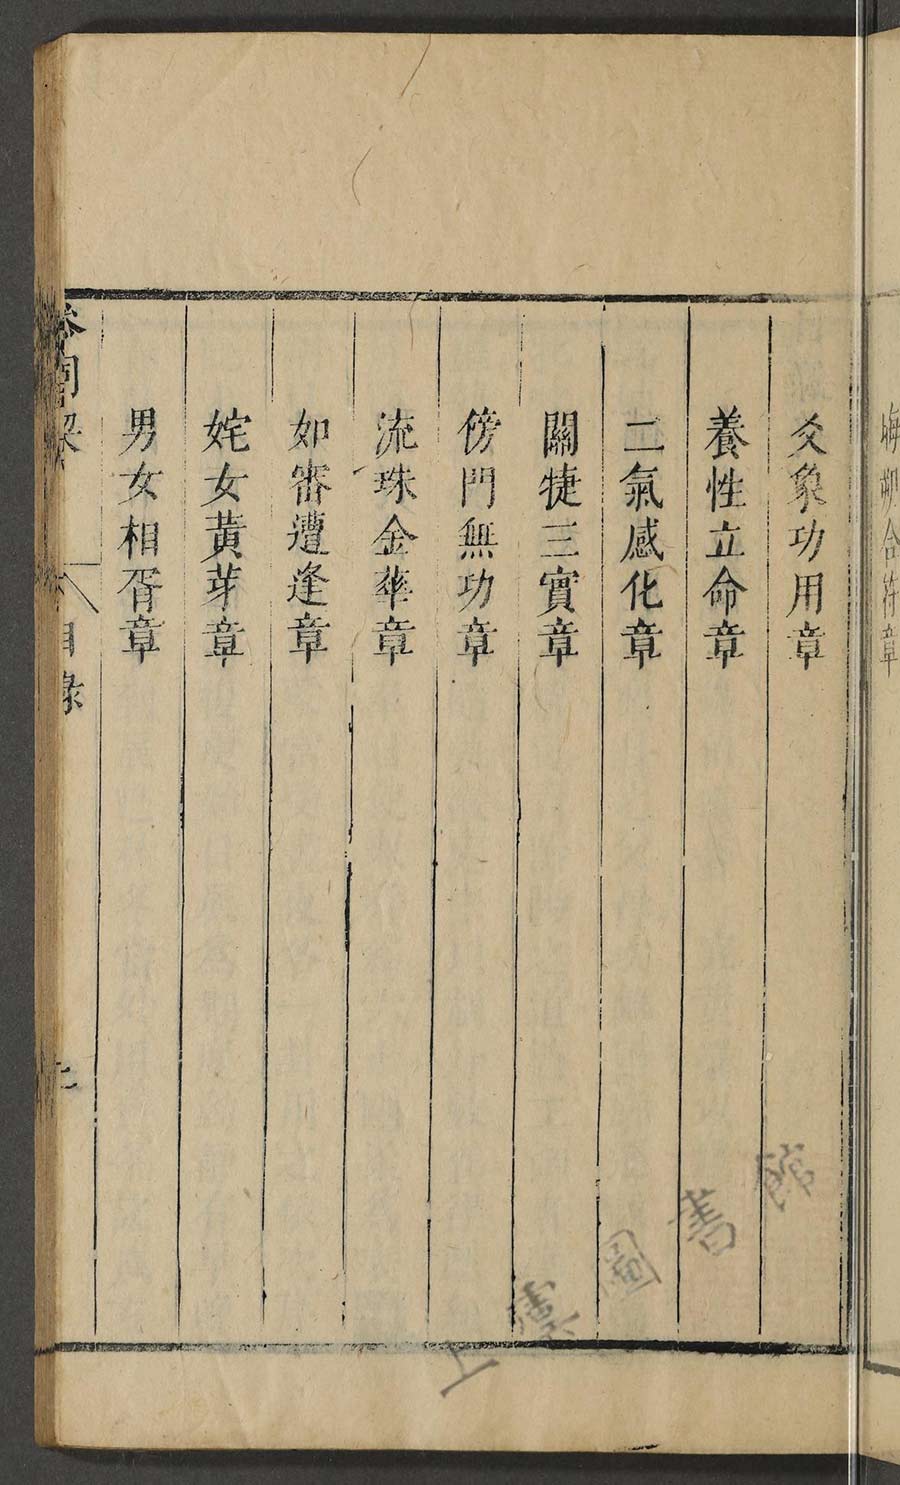 晦朔合符章
爻象功用章
養性立命章
二氣感化章
關揵三實章
傍門無功章
流珠金華章
如審遭逢章
姹女黃芽章
男女相胥章
參同契
目錄
上虞圖書館